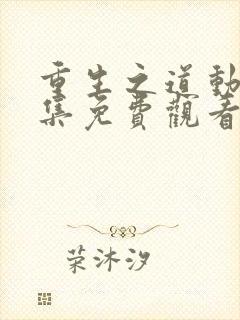 重生之道動
集免費觀看
荣沐汐